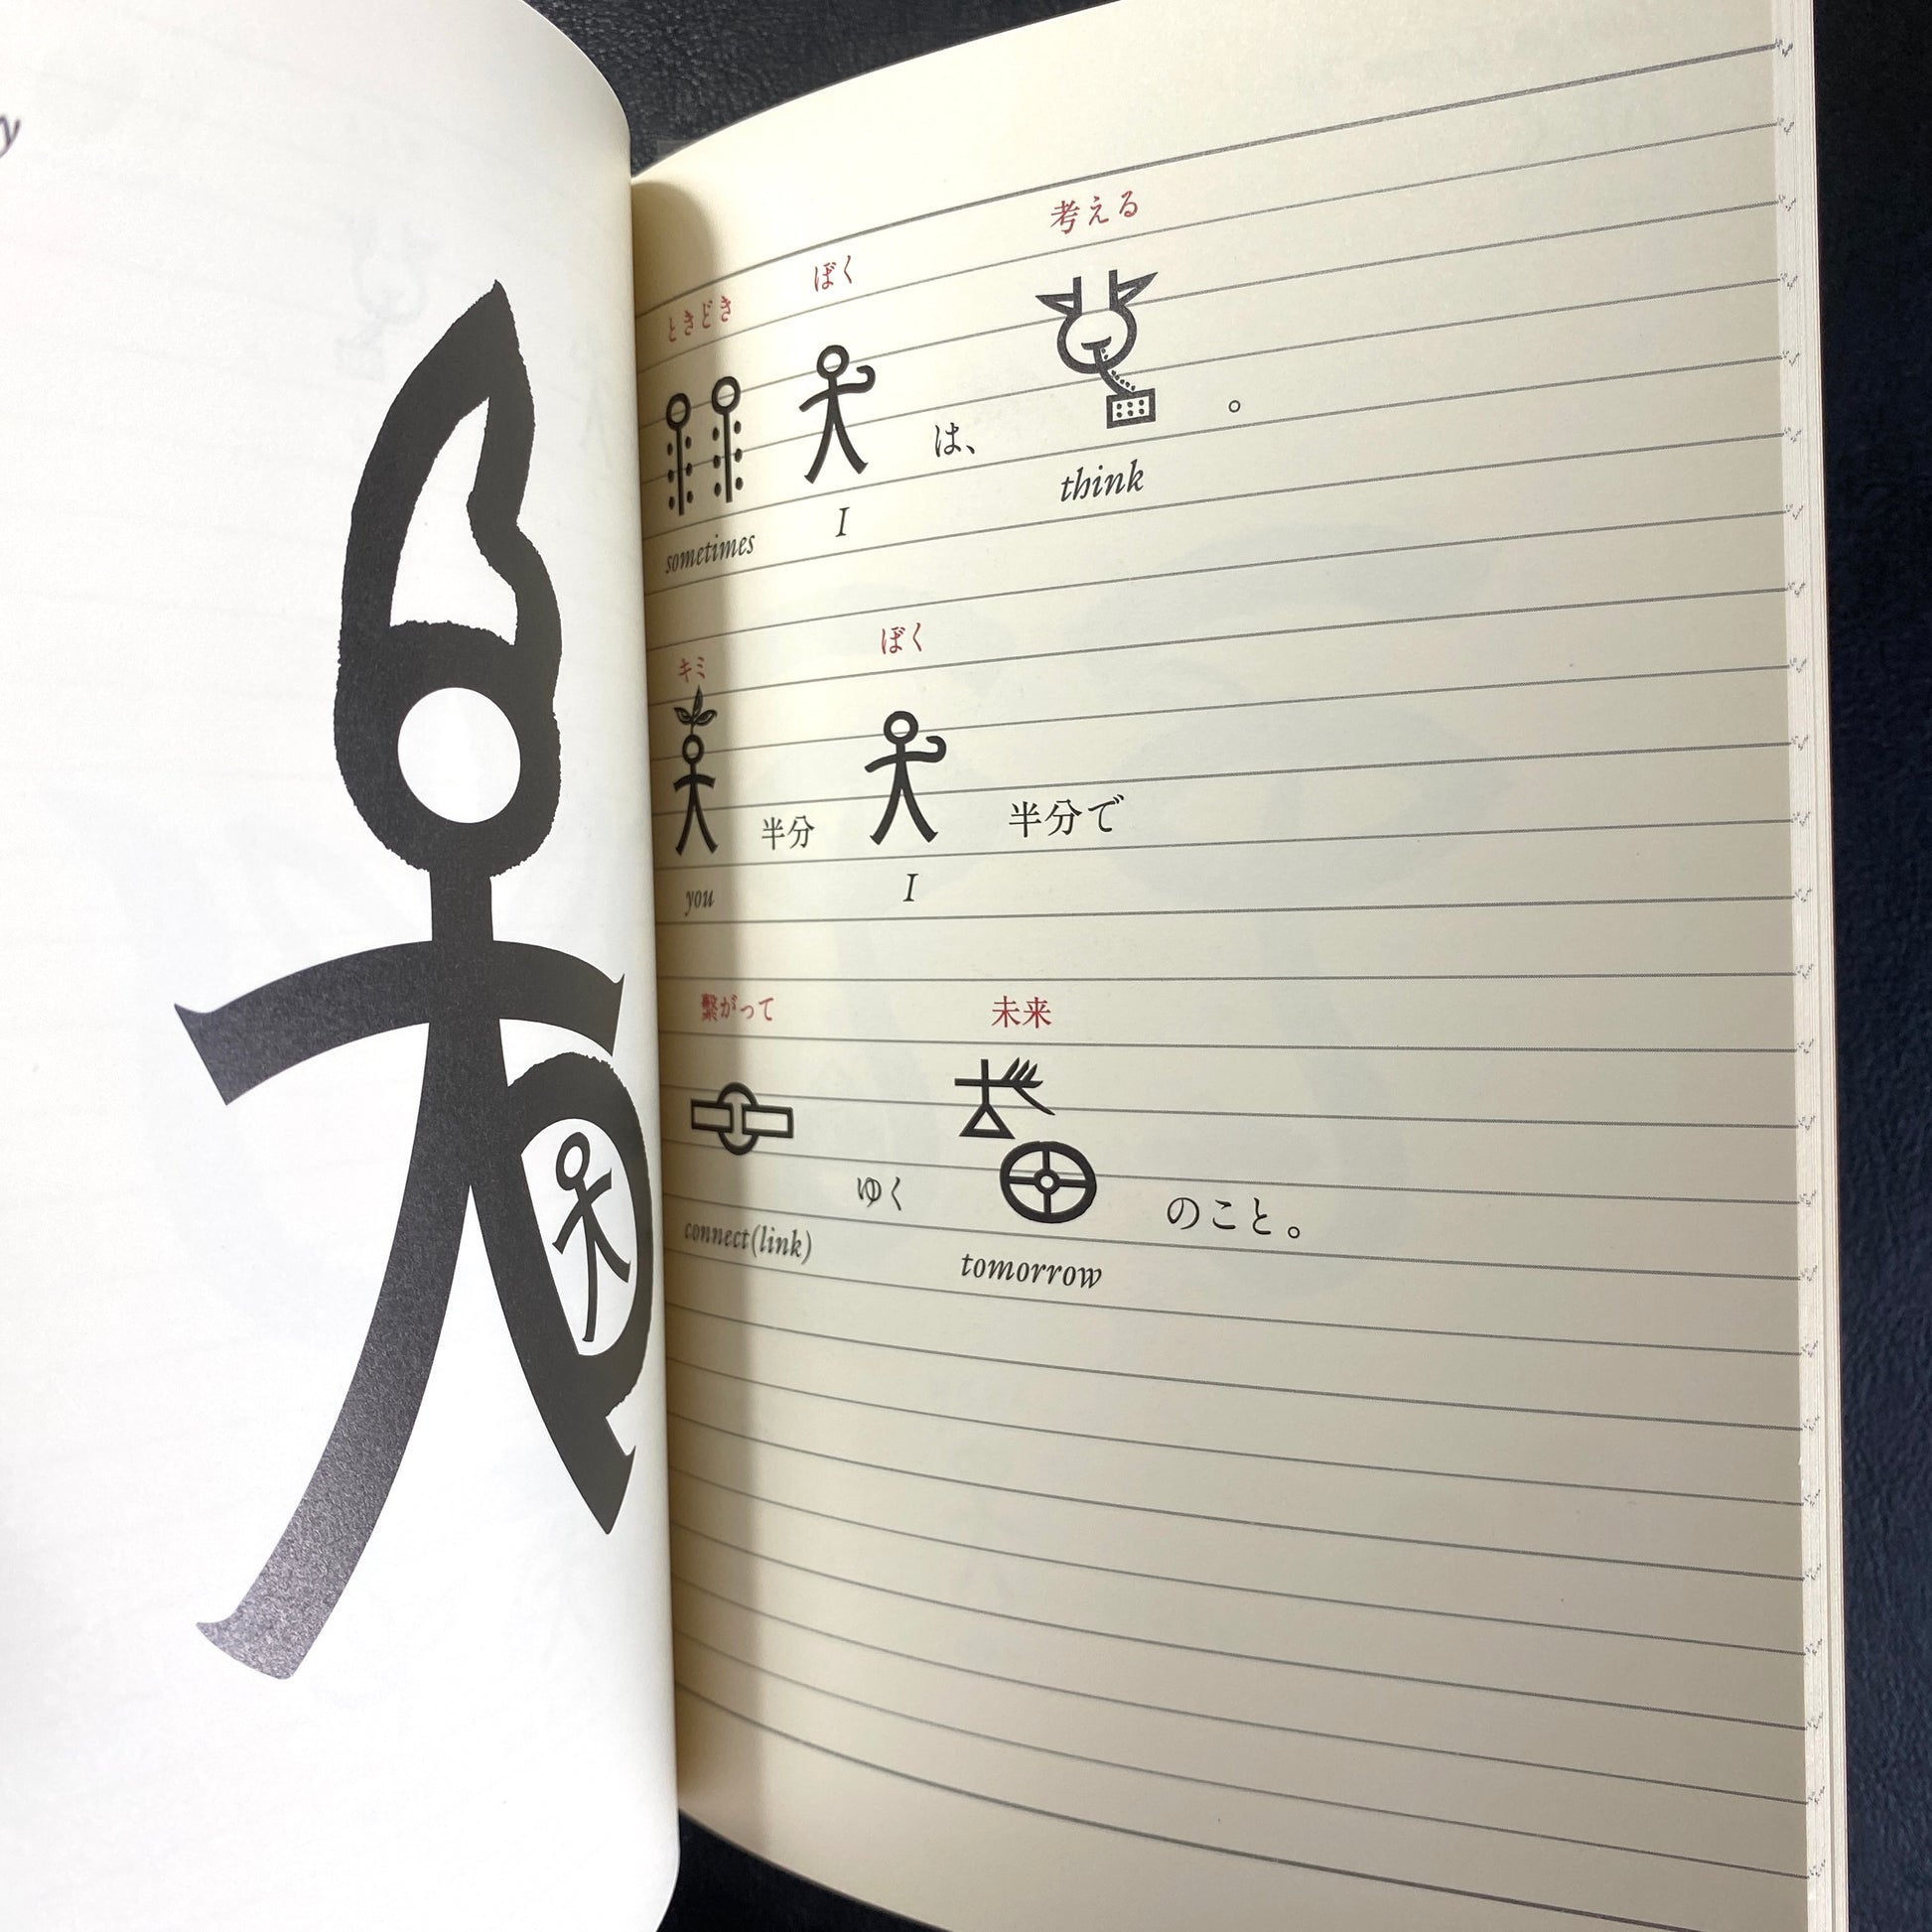 y
考える
ぼく
ときどき
は、 。
think
I
sometimes
ぼく
キミ
半分 半分で
you I
繋がって 未来
ゆく のこと。
connect(link) tomorrow